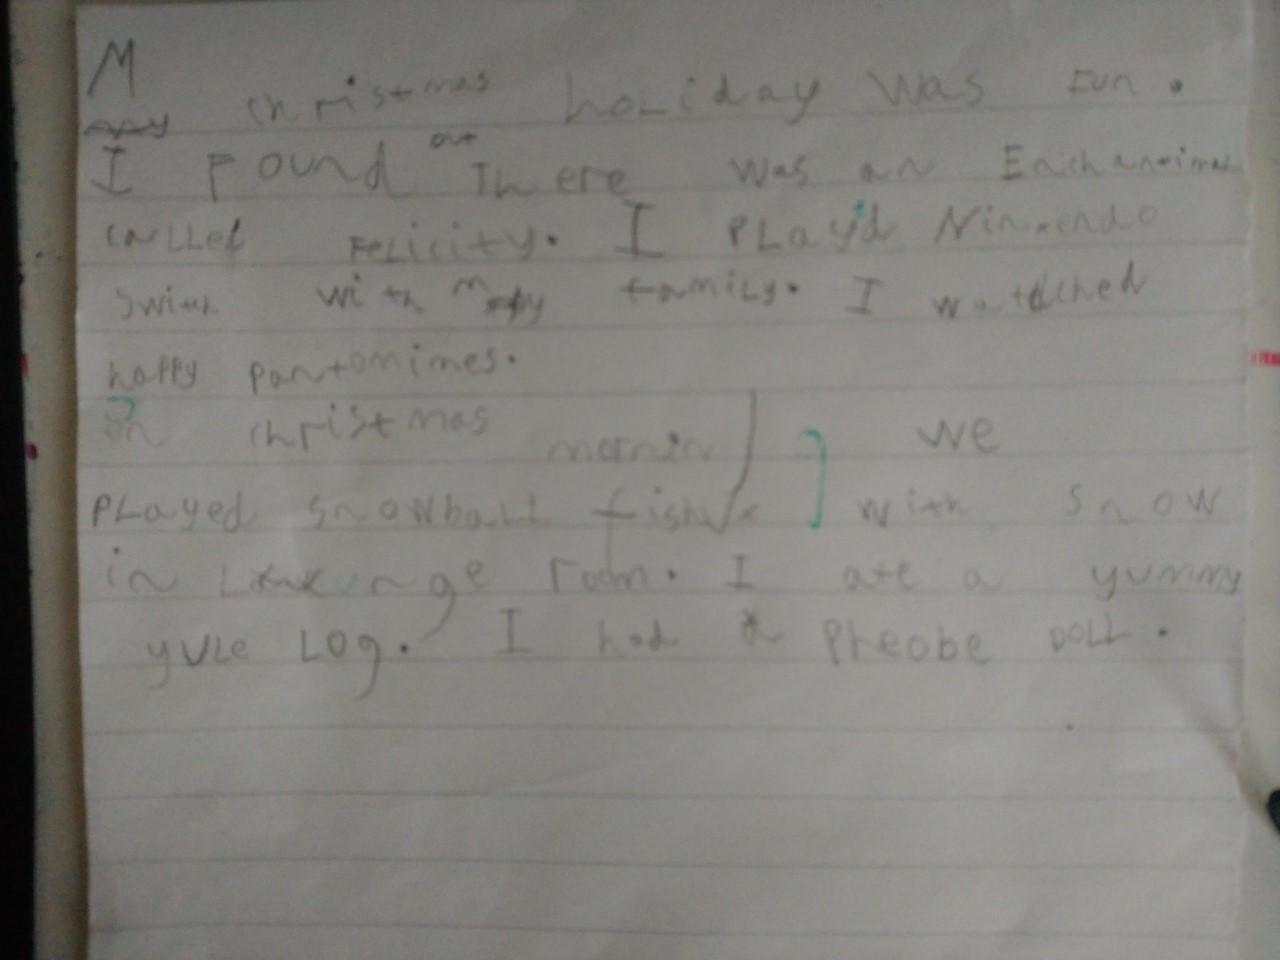 My christmas holiday was Fun.
I Found out There was an Enchantimal
called Felicity. I Playd Nintendo
Swith with my family. I watched
happy pantomimes.
On christmas mornin We
Played snowball fight with snow
in Lounge room. I ate a yummy
yule Log. I had a Pheobe Doll.